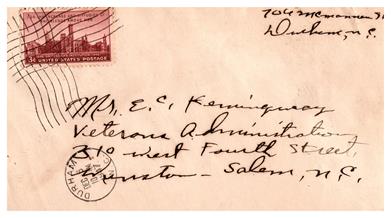 704 McMannen St
Durham, N.C.
3¢ UNITED STATES POSTAGE
Mr. E.C. Hemingway
Veterans Administration
310 West Fourth Street,
Winston-Salem, N.C.
DURHAM